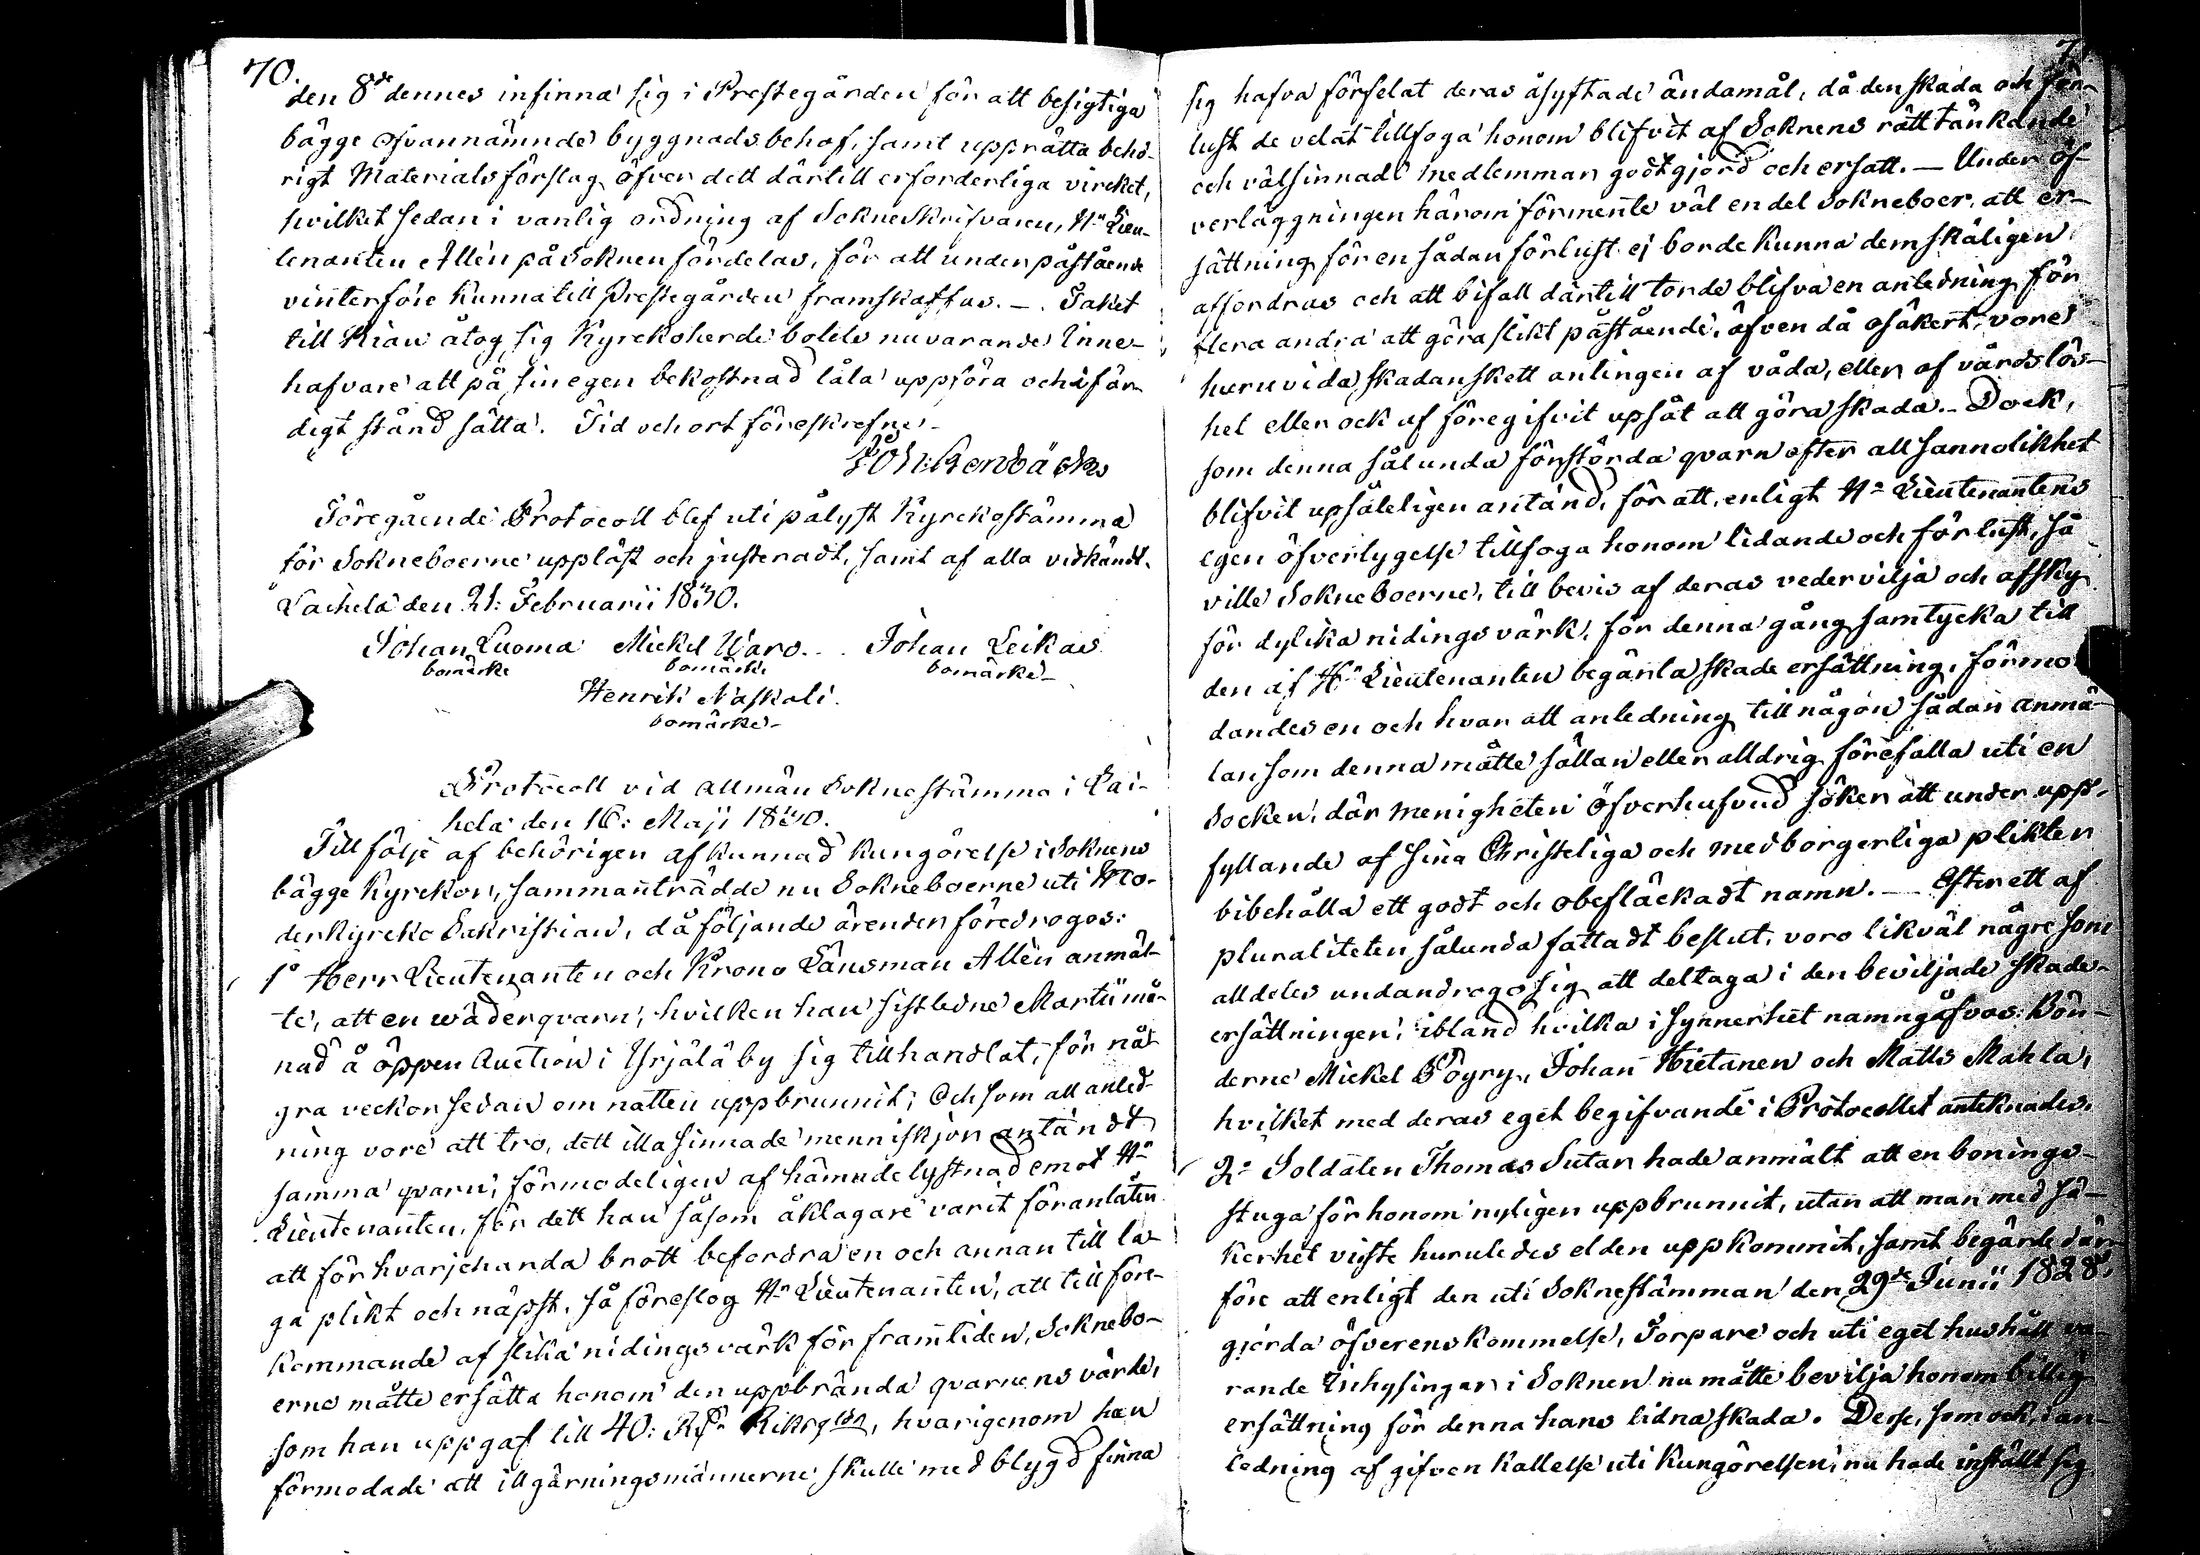 70.
den 8de dennes infinna sig i Prestegården för att besigtiga
bägge ofvannämnde byggnadsbehof, samt upprätta behö-
rigt Materialsförslag öfver dett därtill erforderliga vircket,
hvilket sedan i vanlig ordning af Sokneskrifvaren, Hr Lieu-
tenanten Allén på Soknen fördelas, för att under påstående
vinterföre kunna till Prestegården framskaffas. _ . Taket
till Rian åtog sig Kyrckoherde bolets nuvarande Inne-
hafvare att på sin egen bekostnad låta uppföra och i fär-
digt stånd sätta. Tid och ort föreskrefne _
Föregående Protocoll blef uti pålyst Kyrckostämma
för Sokneboerne uppläst och justeradt, samt af alla vidkändt.
Laihela den 21: Februarii 1830.
Johan Luoma Mickel Waro . . Johan Leikas
bomärke bomärke bomärke _
Henrik Naskali.
bomärke _
Protocoll vid allmän Soknestämma i Lai-
hela den 16: Maji 1830.
Till följe af behörigen afkunnad kungörelse i Soknens
bägge Kyrckor, sammanträdde nu Sokneboerne uti Mo-
derkyrcko Sakristian, då följande ärenden föredrogos:
1o Herr Lieutenanten och Krono Länsman Allén anmäl-
te, att en wäderqvarn, hvilken han sistledne Martii må-
nad å öppen Auction i Yrjälä by sig tillhandlat, för nå-
gra veckor sedan om natten uppbrunnit; Och som all anled-
ning vore att tro, dett illasinnade menniskjor antändt
samma qvarn, förmodeligen af hämndelystnad emot Hr
Lieutenanten, för dett han såsom åklagare varit föranlåten
att för hvarjehanda brott befordra en och annan till la-
ga plikt och näpst, så föreslog Hr Lieutenanten, att till före-
kommande af slika nidingsvärk för framtiden, Soknebo-
erne måtte ersätta honom den uppbrända qvarnens värde,
som han uppgaf till 40: Rdr Riksgldr, hvarigenom han
förmodade att illgärningsmännerne skulle med blygd finna
sig hafva förfelat deras åsyftade ändamål, då den skada och för-
lust de velat tillfoga honom blifvit af Soknens rätttänkande
och välsinnade medlemmar godtgjord och ersatt. — Under öf-
verläggningen härom förmente väl en del Sokneboer, att er-
sättning för en sådan förlust ej borde kunna dem skäligen
affordras och att bifall därtill torde blifva en anledning för
flera andra att göra slikt påstående, äfven då osäkert vore
huruvida skadan skett antingen af våda, eller af vårdslös-
het eller ock af föregifvit upsåt att göra skada. _ Dock,
som denna sålunda förstörda qvarn efter all sannolikhet
blifvit upsåteligen antänd, för att, enligt Hr Lieutenantens
egen öfvertygelse tillfoga honom lidande och förlust, så
ville Sokneboerne, till bevis af deras vedervilja och afsky
för dylika nidingsvärk, för denna gång samtycka till
den af Hr Lieutenanten begärta skade ersättning, förmo
dandes en och hvar att anledning till någon sådan anmä-
lan som denna måtte sällan eller alldrig förefalla uti en
Socken, där menigheten öfverhufvud söker att under upp-
fyllande af sina Christeliga och medborgerliga plikter
bibehålla ett godt och obefläckadt namn. — Efter ett af
pluraliteten sålunda fattadt beslut, voro likväl någre som
alldeles undandrogo sig att deltaga i den beviljade skade-
ersättningen, ibland hvilka i synnerhet namngåfvos: Bön-
derne Mickel Pögry, Johan Hietanen och Matts Mahla,
hvilket med deras eget begifvande i Protocollet anteknades.
2o Soldaten Thomas Sutar hade anmält att en bonings-
stuga för honom nyligen uppbrunnit, utan att man med sä-
kerhet viste huruledes elden uppkommit, samt begärde där-
före att enligt den uti Soknestämman den 29de Junii 1828.
gjorda öfverenskommelse, Torpare och uti eget hushåll va-
rande Inhysingar i Soknen nu måtte bevilja honom billig
ersättning för denna hans lidna skada. Desse, som ock, i an-
ledning af gifven kallelse uti kungörelsen, nu hade inställt sig